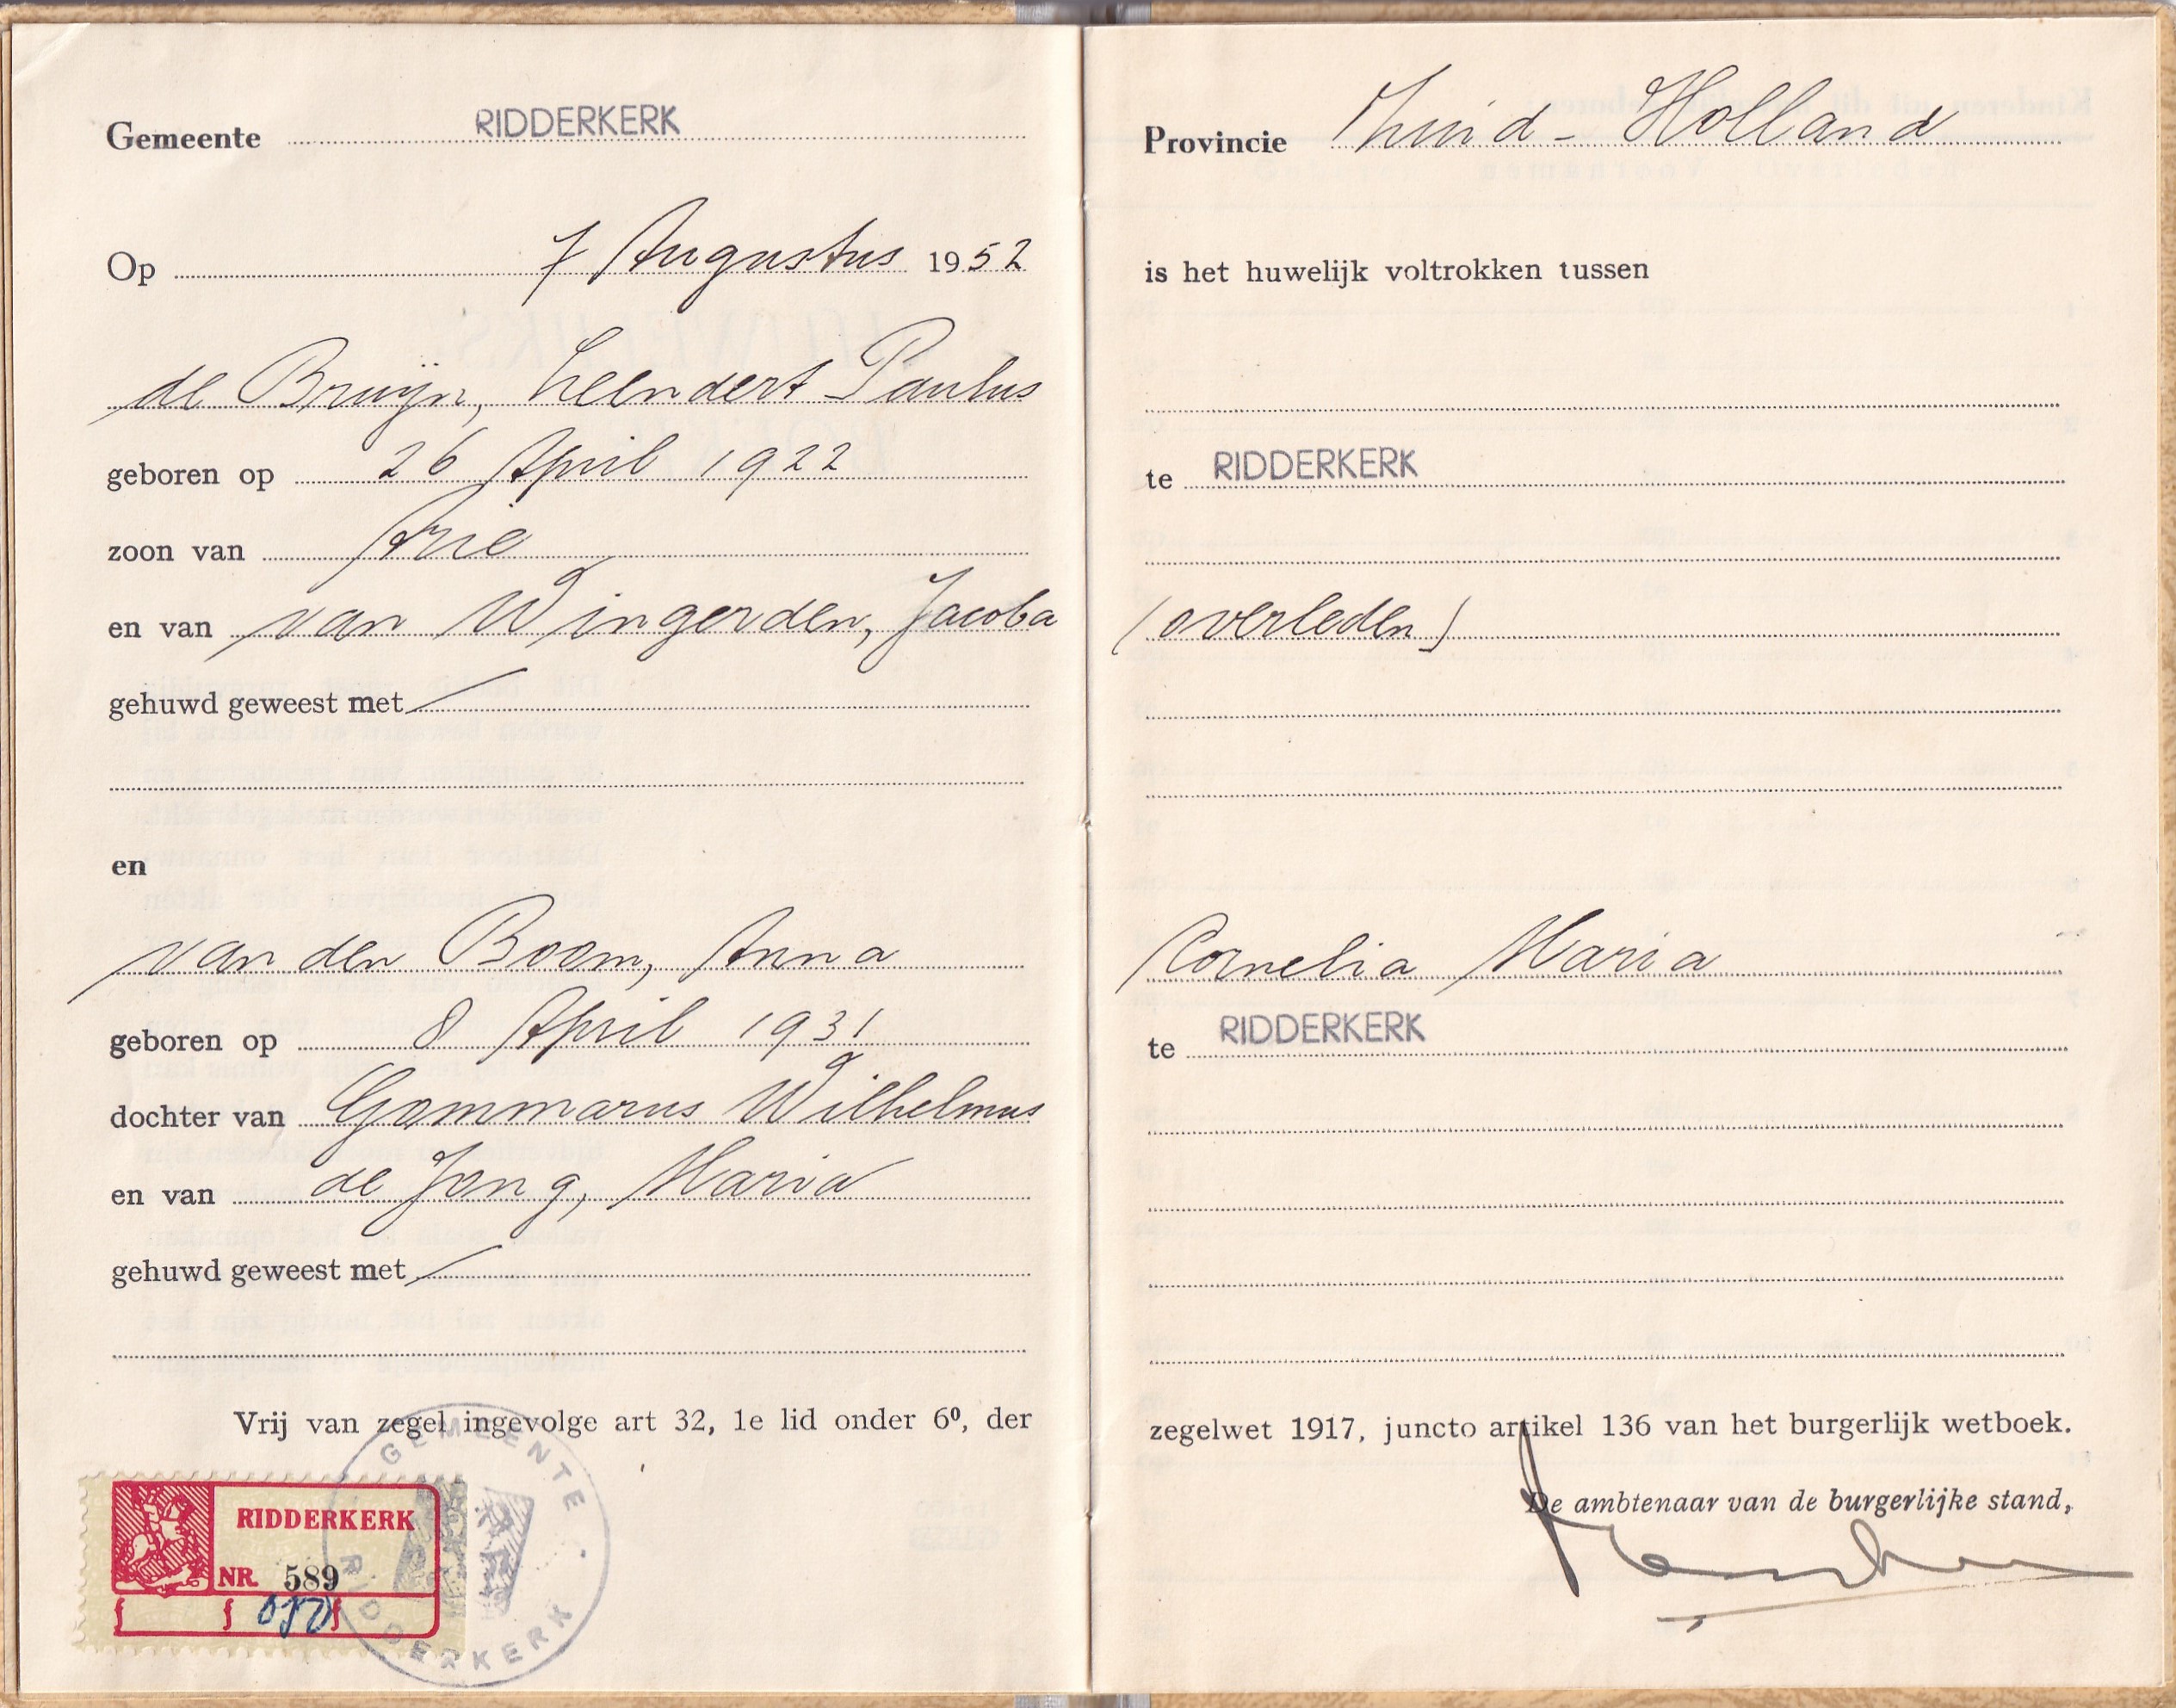 Gemeente RIDDERKERK
Op 7 Augustus 1952
de Bruijn, Leendert Paulus
geboren op 26 April 1922
zoon van Arie
en van van Wingerden, Jacoba
gehuwd geweest met
en
van den Boom, Anna
geboren op 8 April 1931
dochter van Gommarus Wilhelmus
en van de Jong, Maria
gehuwd geweest met
Vrij van zegel ingevolge art 32, 1e lid onder 6⁰, der
RIDDERKERK
NR. 589
f f 0,50 f
GEMEENTE RIDDERKERK
Provincie Zuid-Holland
is het huwelijk voltrokken tussen
te RIDDERKERK
(overleden)
Cornelia Maria
te RIDDERKERK
zegelwet 1917, juncto artikel 136 van het burgerlijk wetboek.
De ambtenaar van de burgerlijke stand,